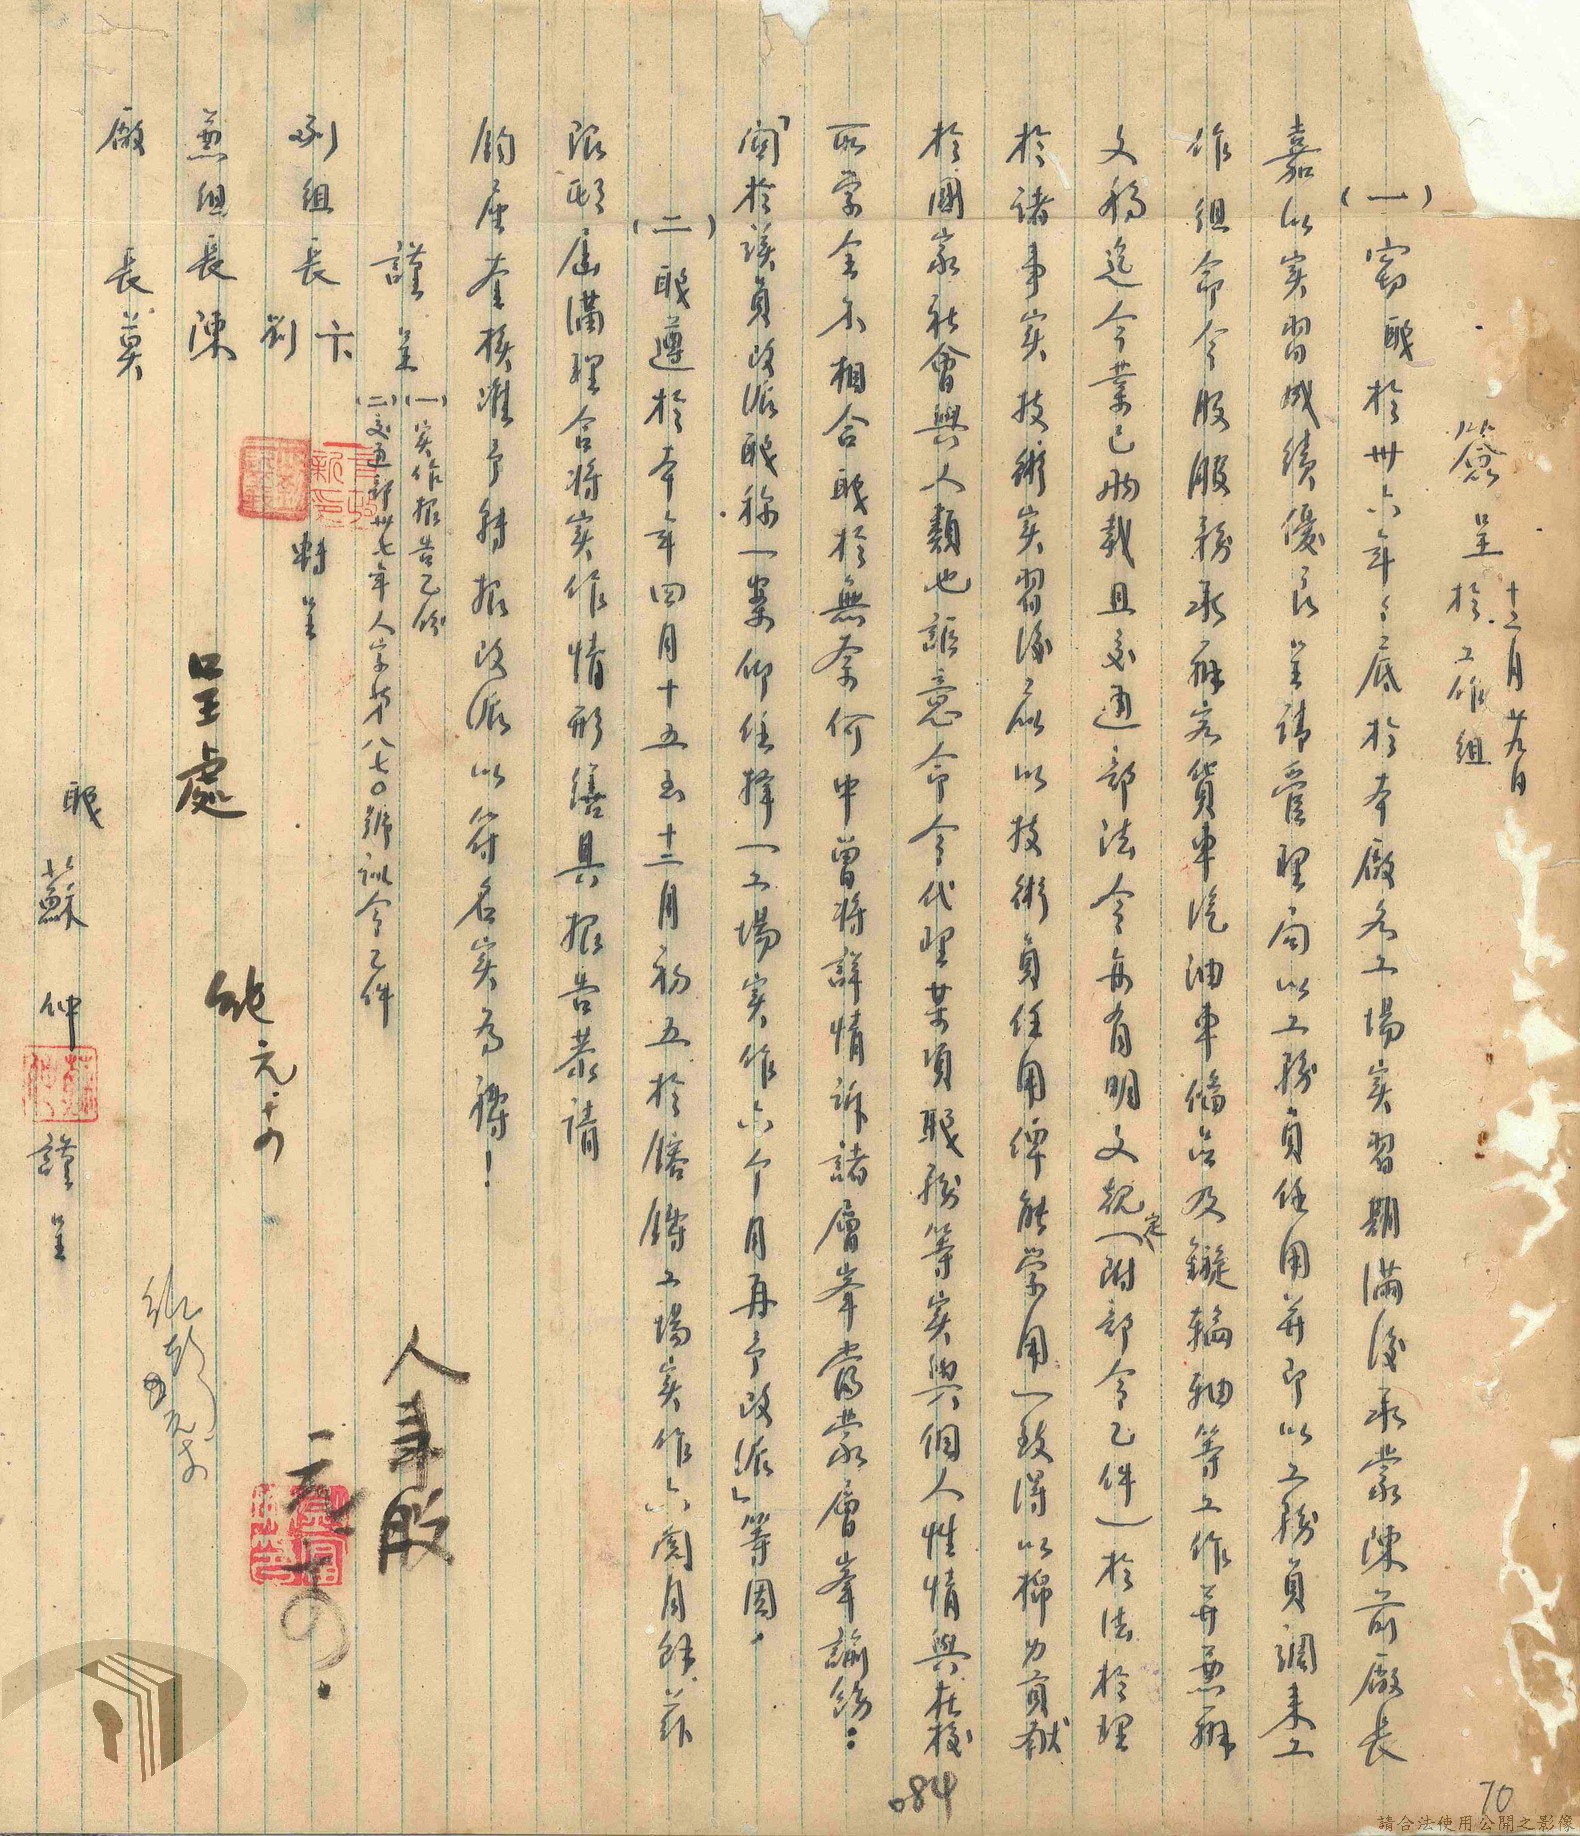 十二月廿九日
簽呈 於工作組
(一)竊職於卅六年年底於本廠各工場實習期滿後承蒙陳前廠長
嘉以實習成績優良呈請管理局以工務員任用并即以工務員調來工
作組命令股服務承辦客貨車汽油車備品及鏇輪軸等工作并兼辦
文稿迄今業已兩載且交通部法令亦有明文規定(附部令乙件)於法於理
於諸事實技術實習後應以技術員任用俾能學用一致得以棉力貢献
於國家社會與人類也詎意命令代理某項職務等實與個人性情與在校
所学全不相合職於無奈何中曾将詳情訴諸層峯嘗蒙層峯諭飭:
「関於該員改派職称一案仰任擇一工場實作六个月再予改派」等因,
(二)職遵於本年四月十五至十二月初五於熔鑄工場實作六閱月餘茲
限期屆滿理合将實作情形繕具報告恭請
鈞座查核准予轉报改派以符名实為禱!
謹呈
(一)实作报告乙份
(二)交通部卅七年人字第八七〇號訓令乙件
副組長 卞 劉 轉呈
兼組長陳
廠長莫
呈處
元.十四
人事股
一元十四
職 蘇仲 謹呈
084
70
請合法使用公開之影像